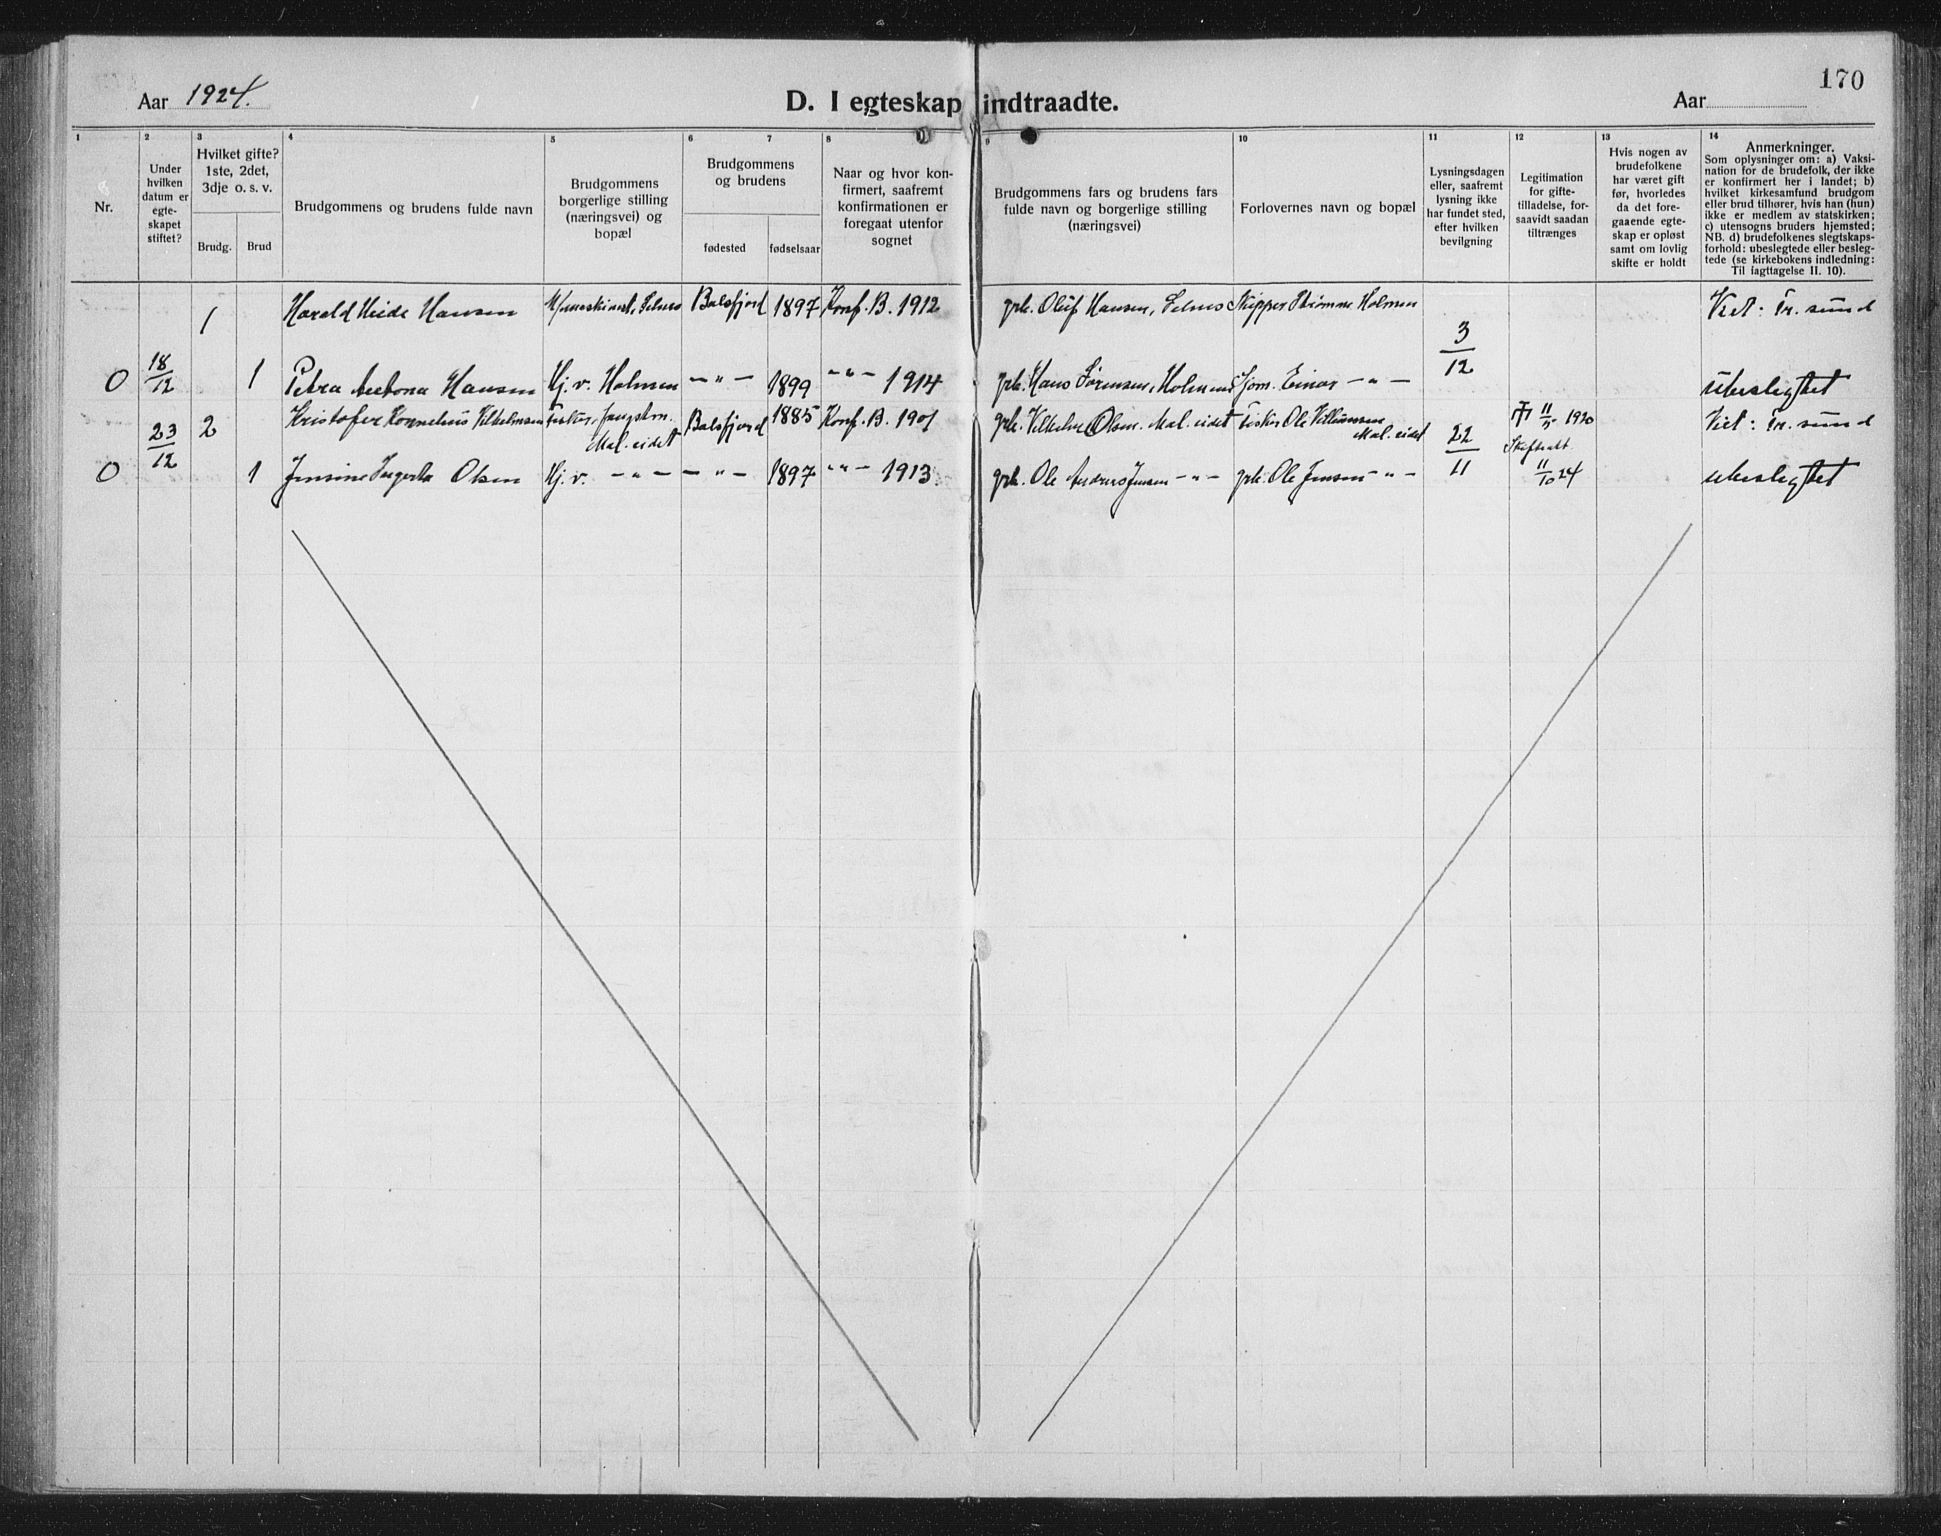 170
Aar 1924.
D. I egteskap indtraadte.
Aar
1 2 3 4 5 6 7 8 9 10 11 12 13 14
Nr.
Under hvilken datum er egte-skapet stiftet?
Hvilket gifte? 1ste, 2det, 3dje o. s. v.
Brudg. Brud
Brudgommens og brudens fulde navn
Brudgommens borgerlige stilling (næringsvei) og bopæl
Brudgommens og brudens
fødested fødselsaar
Naar og hvor kon-firmert, saafremt konfirmationen er foregaat utenfor sognet
Brudgommens fars og brudens fars fulde navn og borgerlige stilling (næringsvei)
Forlovernes navn og bopæl
Lysningsdagen eller, saafremt lysning ikke har fundet sted, efter hvilken bevilgning
Legitimation for gifte-tilladelse, for-saavidt saadan tiltrænges
Hvis nogen av brudefolkene har været gift før, hvorledes da det fore-gaaende egte-skap er opløst samt om lovlig skifte er holdt
Anmerkninger.
Som oplysninger om: a) Vaksi-nation for de brudefolk, der ikke er konfirmert her i landet; b) hvilket kirkesamfund brudgom eller brud tilhører, hvis han (hun) ikke er medlem av statskirken; c) utensogns bruders hjemsted; NB. d) brudefolkenes slegtskaps-forhold: ubeslegtede eller besleg-tede (se kirkebokens indledning: Til iagttagelse II. 10).
1 Harald Heide Hansen Selnes Balsfjord 1897 Konf. B. 1912 grb. Oluf Hansen, Selnes Skipper Strømme Holmen Viet: Tr. sund
0 18/12 1 Petra Hansen Hj. v. Holmen — " — 1899 — " — 1914 grb. Hans Sørensen, Holmen Einar — " — 3/12 ubeslegtet
23/12 2 Kristofer Kornelius Vilhelmsen Mal. eidet Balsfjord 1885 Konf. B. 1901 grb. Vilhelm Olsen. Mal. eidet Fisker Ole Mal. eidet 22/11 1920 Viet: Tr. sund
0 1 Jensine Olsen Hj. v. — " — — " — 1897 — " — 1913 grb. Ole Anders Jensen — " — grb. Ole Jensen — " — 11/10 24 ubeslegtet